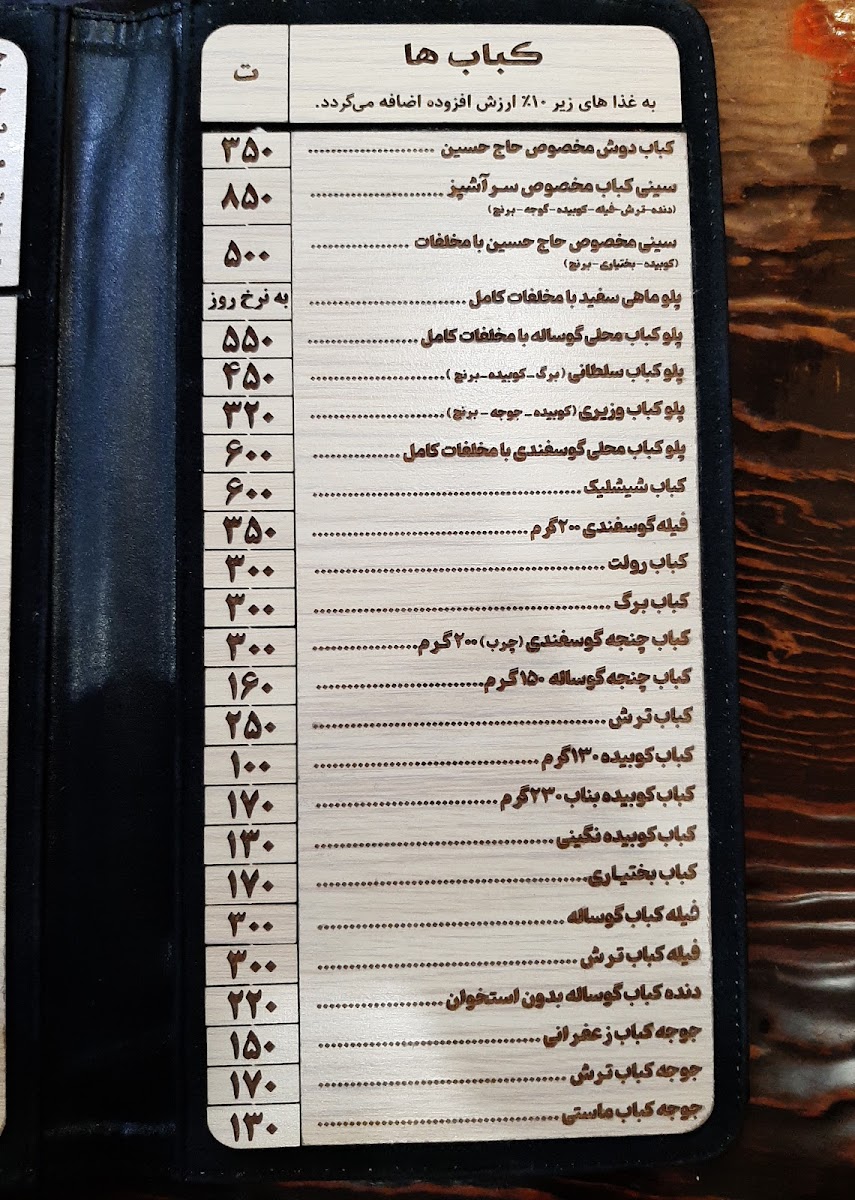 کباب ها
ت
به غذا های زیر ۱۰٪ ارزش افزوده اضافه می‌گردد.
کباب دوش مخصوص حاج حسین ........ ۳۵۰
سینی کباب مخصوص سرآشپز ........ ۸۵۰
(دنده-ترش-فیله-کوبیده-گوجه-برنج)
سینی مخصوص حاج حسین با مخلفات ........ ۵۰۰
(کوبیده-بختیاری-برنج)
پلو ماهی سفید با مخلفات کامل ........ به نرخ روز
پلو کباب محلی گوساله با مخلفات کامل ........ ۵۵۰
پلو کباب سلطانی (برگ-کوبیده-برنج) ........ ۴۵۰
پلو کباب وزیری (کوبیده-جوجه-برنج) ........ ۳۲۰
پلو کباب محلی گوسفندی با مخلفات کامل ........ ۶۰۰
کباب شیشلیک ........ ۶۰۰
فیله گوسفندی ۲۰۰گرم ........ ۳۵۰
کباب رولت ........ ۳۰۰
کباب برگ ........ ۳۰۰
کباب چنجه گوسفندی (چرب) ۲۰۰گرم ........ ۳۰۰
کباب چنجه گوساله ۱۵۰گرم ........ ۱۶۰
کباب ترش ........ ۲۵۰
کباب کوبیده ۱۳۰گرم ........ ۱۰۰
کباب کوبیده بناب ۲۳۰گرم ........ ۱۷۰
کباب کوبیده نگینی ........ ۱۳۰
کباب بختیاری ........ ۱۷۰
فیله کباب گوساله ........ ۳۰۰
فیله کباب ترش ........ ۳۰۰
دنده کباب گوساله بدون استخوان ........ ۲۲۰
جوجه کباب زعفرانی ........ ۱۵۰
جوجه کباب ترش ........ ۱۷۰
جوجه کباب ماستی ........ ۱۳۰